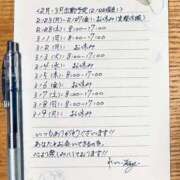 12月・3月出勤予定(2/20現在)
2/25(日)、2/27(金)、お休み(生理休暇)
2/28(土) 8:00-17:00
3/1(日) 8:00-17:00
3/2(月) お休み
3/3(火) 8:00-17:00
3/4(水) お休み
3/5(木) お休み
3/6(金) お休み
3/7(土) 8:00-17:00
3/8(日) 8:00-17:00
3/9(月) お休み
いつもありがとうございます!!
あなたとお会いできるのを、
心より楽しみにしております!!